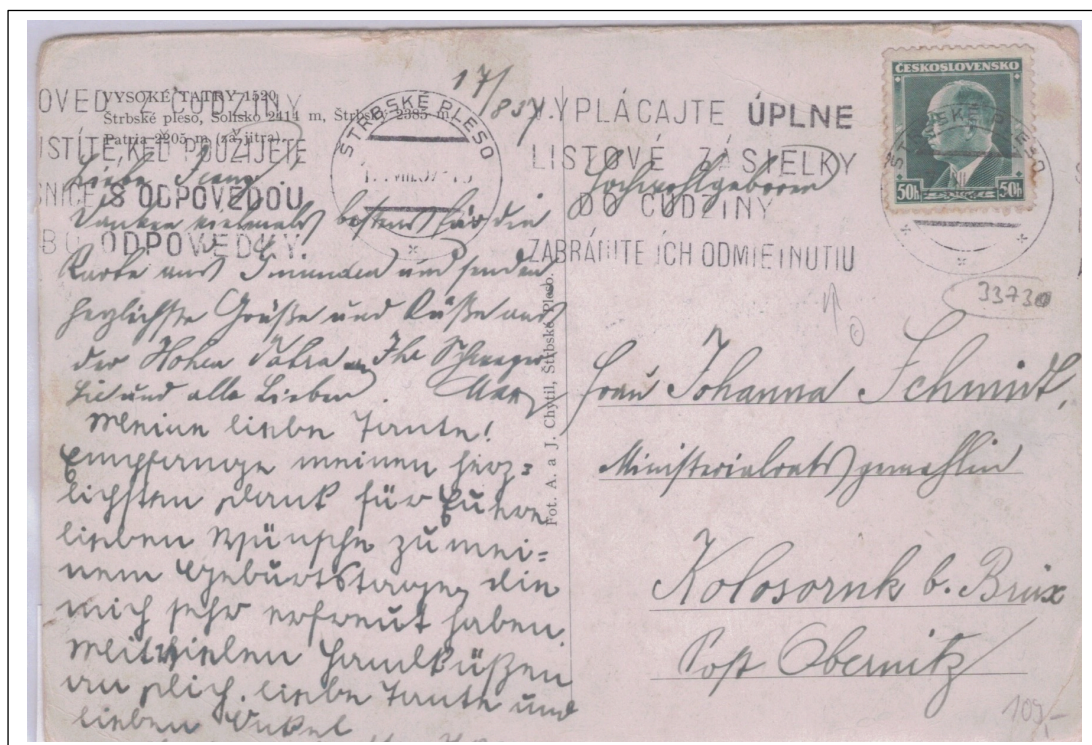 17/8 37.
VYSOKÉ TATRY 1520
Štrbské pleso, Solisko 2414 m, Štrbský 2385 m
Patria 2205 m (za jitra).
OVEĎ Z CUDZINY
ISTÍTE, KEĎ POUŽIJETE
SNICE S ODPOVEĎOU
BO ODPOVEDKY.
ŠTRBSKÉ PLESO
VYPLÁCAJTE ÚPLNE
LISTOVÉ ZÁSIELKY
DO CUDZINY
ZABRÁNITE ICH ODMIETNUTIU
ČESKOSLOVENSKO
50h 50h
Liebe
Danken vielmals bestens für die
Karte aus Gmunden und senden
herzlichste Grüße und Küsse aus
der Hohen Tatra Ihr Schwager
Sie und alle Lieben.
Meine liebe Tante!
Empfange meinen herz-
lichsten Dank für Euere
lieben Wünsche zu mei-
nem Geburtstage, die
mich sehr erfreut haben.
Mit vielen Handküßen
an Dich, liebe Tante und
lieben Onkel
Fot. A. a J. Chytil, Štrbské Pleso.
Hochwohlgeboren
33730
Frau Johanna Schmidt,
Ministerialratsgemahlin
Kolosoruk b. Brüx
Post Obernitz
109,-